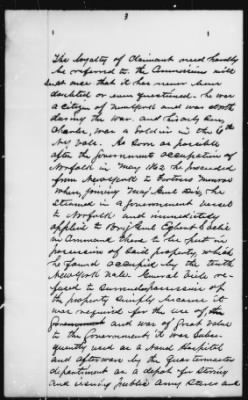 3
The loyalty of Claimant need hardly
be referred to. the Commissioners will
see that it has never been
doubted or even questioned. he was
a citizen of New York and was North
during the war. and his only son,
Charles, was a soldier in the 6th
N.Y. Vols. As soon as possible
after the Government occupation of
Norfolk in May 1862 he proceeded
from New York to Fortress Monroe
when, joining Maj Genl Dix, he
steamed in a government vessel
to Norfolk and immediately
applied to Brig Genl Egbert L. Viele
in Command there to be put in
possession of said property, which
he found occupied by the Tenth
New York Vols. General Viele re-
fused to surrender possession of
the property simply because it
was required for the use of, the
Government and was of great value
to the Government. It was Subse-
quently used as a Naval Hospital
and afterwards by the quartermaster
department as a depot for storing
and issuing public Army Stores and